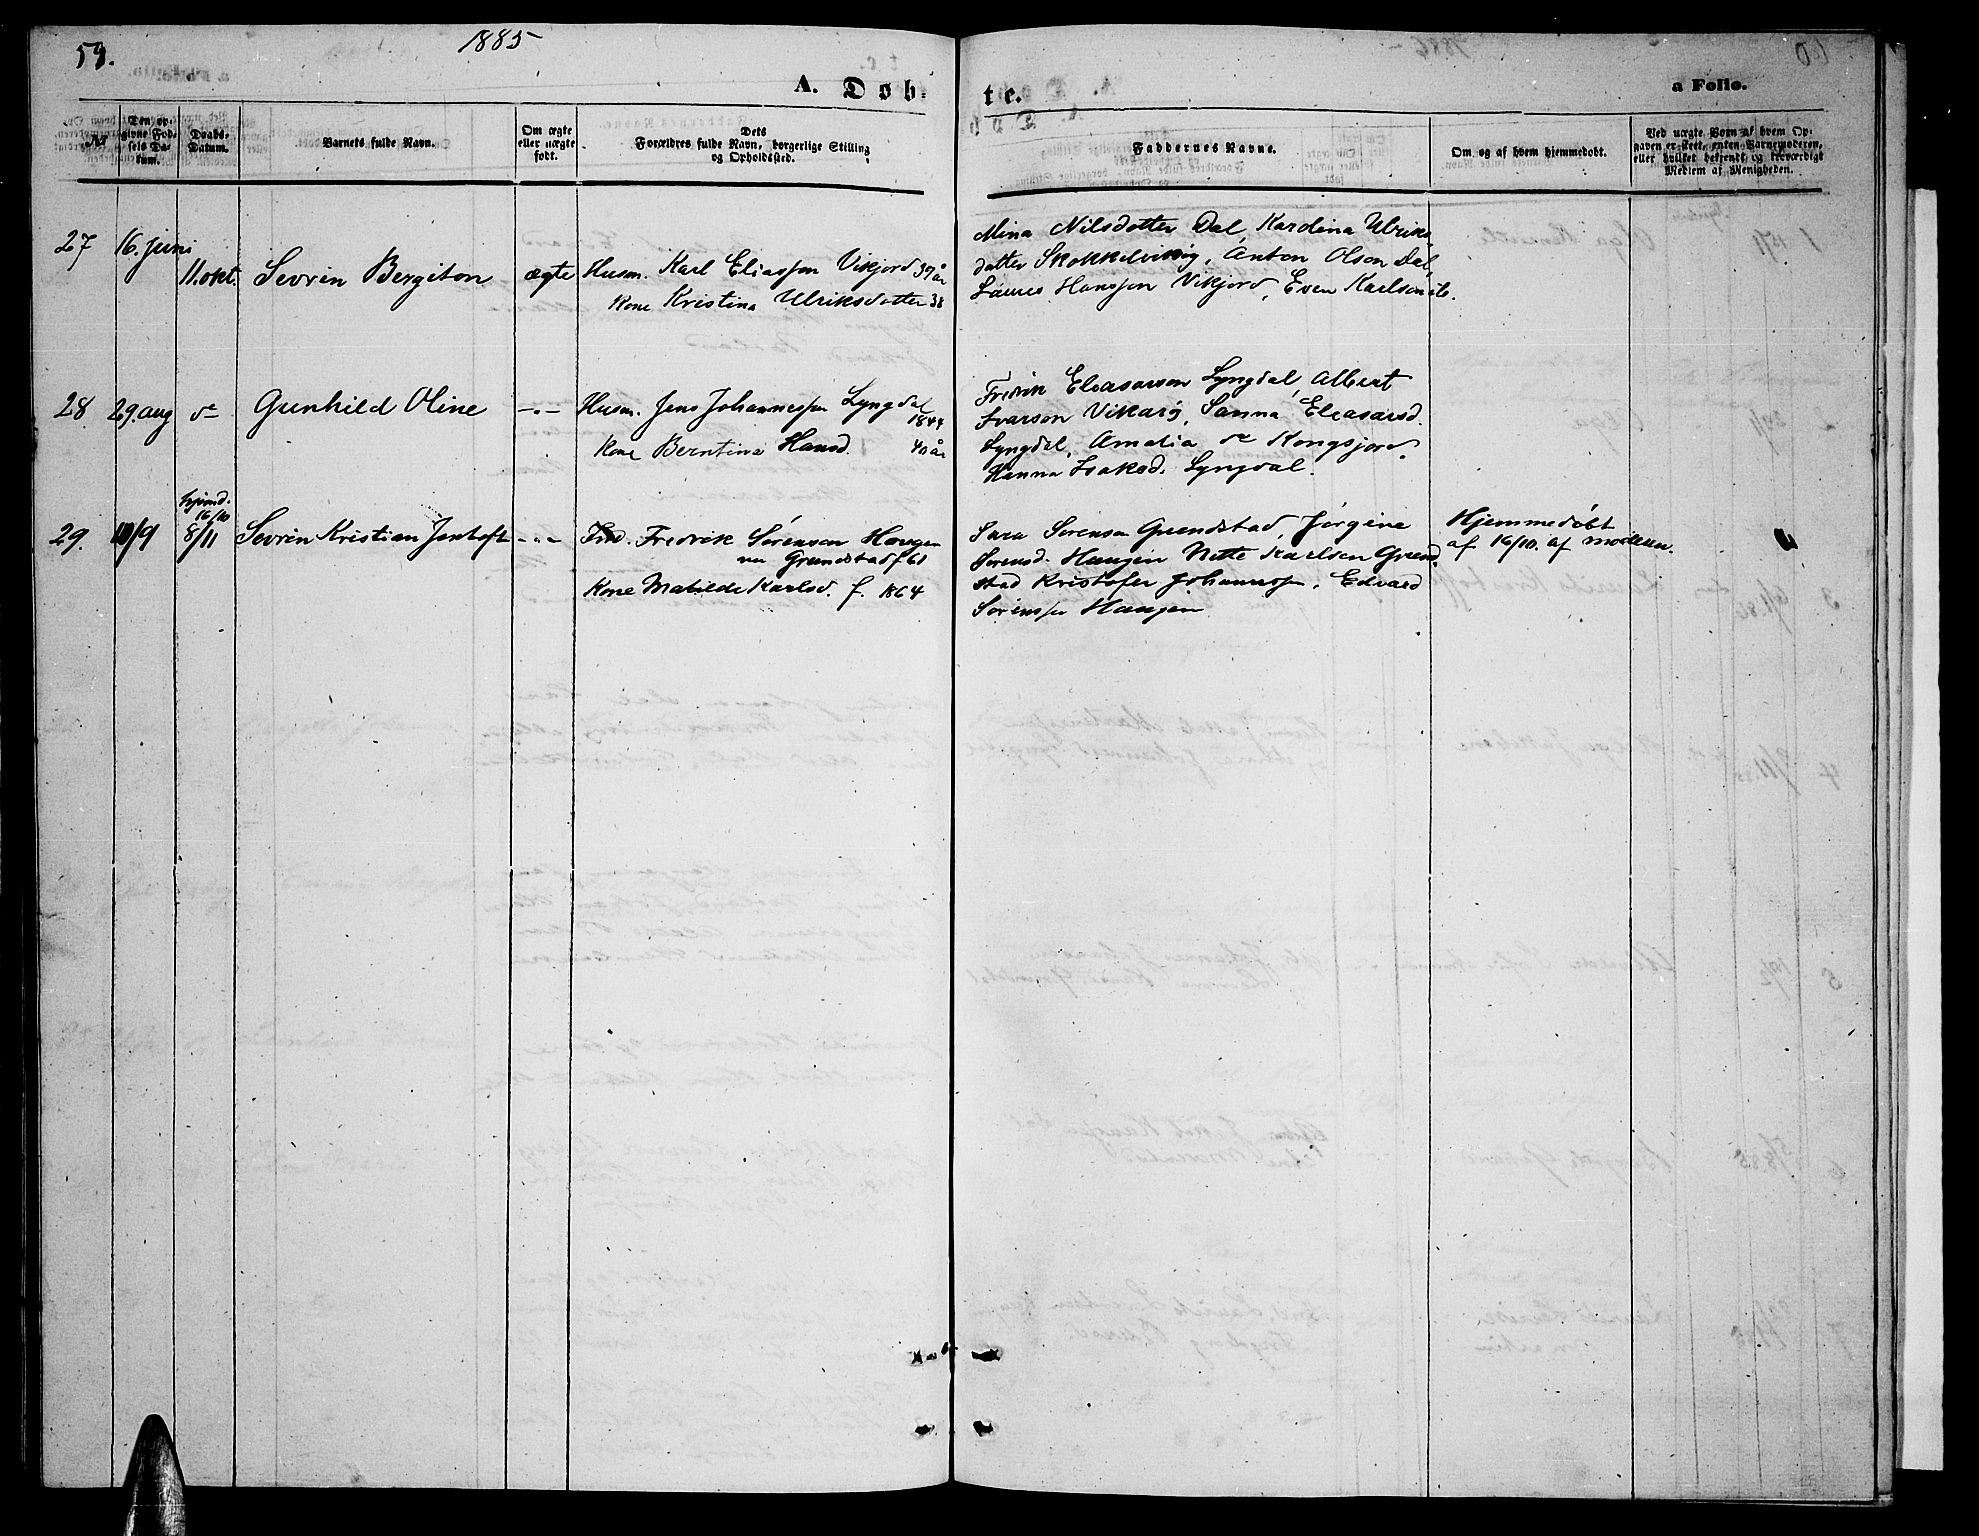 59.
1885
A. Døb-
te.
a Folio.
№
Den op-
givne Fød-
sels Da-
tum.
Daabs-
Datum.
Barnets fulde Navn.
Om ægte
eller uægte
født.
Dets
Forældres fulde Navn, borgerlige Stilling
og Opholdssted.
Faddernes Navne.
Om og af hvem hjemmedøbt.
Ved uægte Børn af hvem Op-
gaven er skeet, enten Barnemoderen,
eller hvilket bekjendt og troværdigt
Medlem af Menigheden.
27
16. juni
11. okt.
Sevrin Bergiton
ægte
Husm. Karl Eliassøn Vikjord 39 år
Kone Kristina Ulriksdatter 38
Mina Nilsdatter Dal, Kardina Ulriks-
datter Skokkelvikøg, Anton Olson Dal,
Hanssøn Vikjord, Even Karlson
28
29. aug
Gunhild Oline
-"-
Husm. Jens Johannessøn Lyngdal
1844
Kone Berntina Hansd. 40 år
Fredrik Eleasarson Lyngdal, Albert
Ivarson Vikarø, Sanna Eleasarsd.
Lyngdal, Amalia Kongsjord.
Hanna Isaksd. Lyngdal.
29.
10/9
hjemd.
16/10
8/11
Sevrin Kristian Jentoft
-"-
Fredrik Sørenson Haugen
Grundstad f 61
Kone Matilde Karlsd. f. 1864
Sara Sørensen Grundstad, Jørgine
Sørensd. Haugen Nette Karlsen Grund-
stad Kristofer Johannessøn, Edvard
Sørenssøn Haugen
Hjemmedøbt
af 16/10. af moderen.